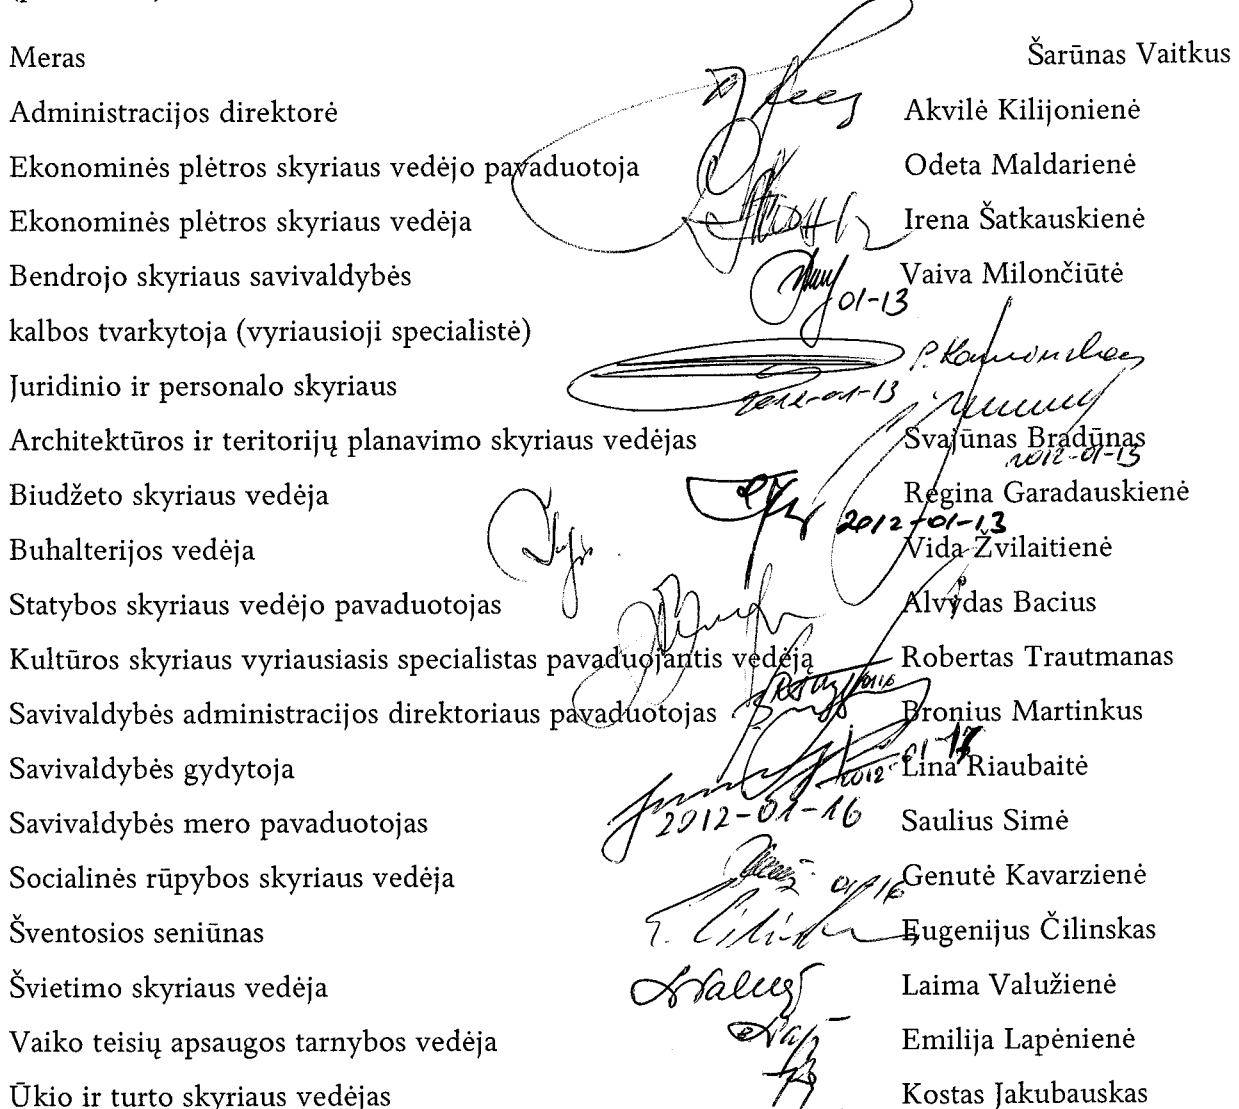 Meras Šarūnas Vaitkus
Administracijos direktorė Akvilė Kilijonienė
Ekonominės plėtros skyriaus vedėjo pavaduotoja Odeta Maldarienė
Ekonominės plėtros skyriaus vedėja Irena Šatkauskienė
Bendrojo skyriaus savivaldybės Vaiva Milončiūtė
01-13
kalbos tvarkytoja (vyriausioji specialistė)
Juridinio ir personalo skyriaus 2012-01-13
Architektūros ir teritorijų planavimo skyriaus vedėjas Svajūnas Bradūnas
2012-01-13
Biudžeto skyriaus vedėja Regina Garadauskienė
2012-01-13
Buhalterijos vedėja Vida Žvilaitienė
Statybos skyriaus vedėjo pavaduotojas Alvydas Bacius
Kultūros skyriaus vyriausiasis specialistas pavaduojantis vedėją Robertas Trautmanas
Savivaldybės administracijos direktoriaus pavaduotojas Bronius Martinkus
Savivaldybės gydytoja 2012-01-17 Lina Riaubaitė
Savivaldybės mero pavaduotojas 2012-01-16 Saulius Simė
Socialinės rūpybos skyriaus vedėja 01-16 Genutė Kavarzienė
Šventosios seniūnas Eugenijus Čilinskas
Švietimo skyriaus vedėja Laima Valužienė
Vaiko teisių apsaugos tarnybos vedėja Emilija Lapėnienė
Ūkio ir turto skyriaus vedėjas Kostas Jakubauskas